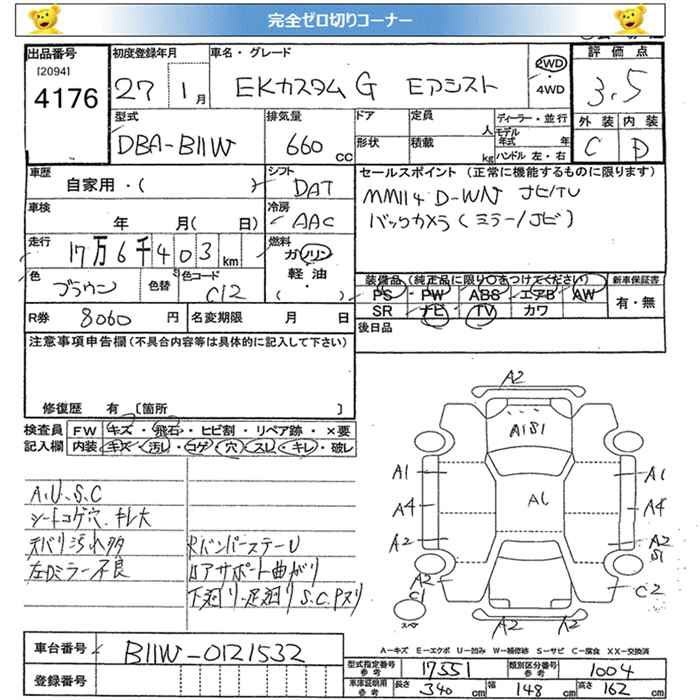 完全ゼロ切りコーナー
出品番号 初度登録年月 車名・グレード 評価点
[2094]
4176 27 1月 EKカスタムG Eアシスト 2WD・4WD 3.5
型式 排気量 ドア 定員 ディーラー・並行 外装 内装
DBA-B11W 660cc 形状 積載 人 kg モデル年式 年 ハンドル 左・右 C D
車歴 シフト セールスポイント (正常に機能するものに限ります)
自家用・( ) DAT MM114 D-WN ナビ/TV
車検 冷房 バックカメラ(ミラー/ナビ)
年 月( 日) AAC
走行 燃料
17万6千403km ガソリン・軽油・( )
色 色替 色コード 装備品 (純正品に限り○をつけてください) 新車保証書
ブラウン C12 PS PW ABS エアB AW 有・無
R券 8060円 名変期限 月 日 SR ナビ TV カワ
後日品
注意事項申告欄 (不具合内容等は具体的に記入して下さい)
修復歴 有 [箇所 ]
検査員 FW キズ・飛石・ヒビ割・リペア跡・×要
記入欄 内装 キズ・汚レ・コゲ・穴・スレ・キレ・破レ
A.U.S.C
シートコゲ穴、キレ大
天バリ汚れ多 Rバンパーステー U
左Dミラー不良 ロアサポート曲がり
下廻り・足廻り S.C.Pスリ
A2
A1S1
A1 A1 A1
A4 A4
A2 A2 S1
A2 C1 C2
A2 A2
A-キズ E-エクボ U-凹み W-補修跡 S-サビ C-腐食 XX-交換済
車台番号 B11W-0121532
登録番号
型式指定番号 参考 17551 類別区分番号 参考 1004
車庫証明用 参考 長さ 340cm 幅 148cm 高さ 162cm